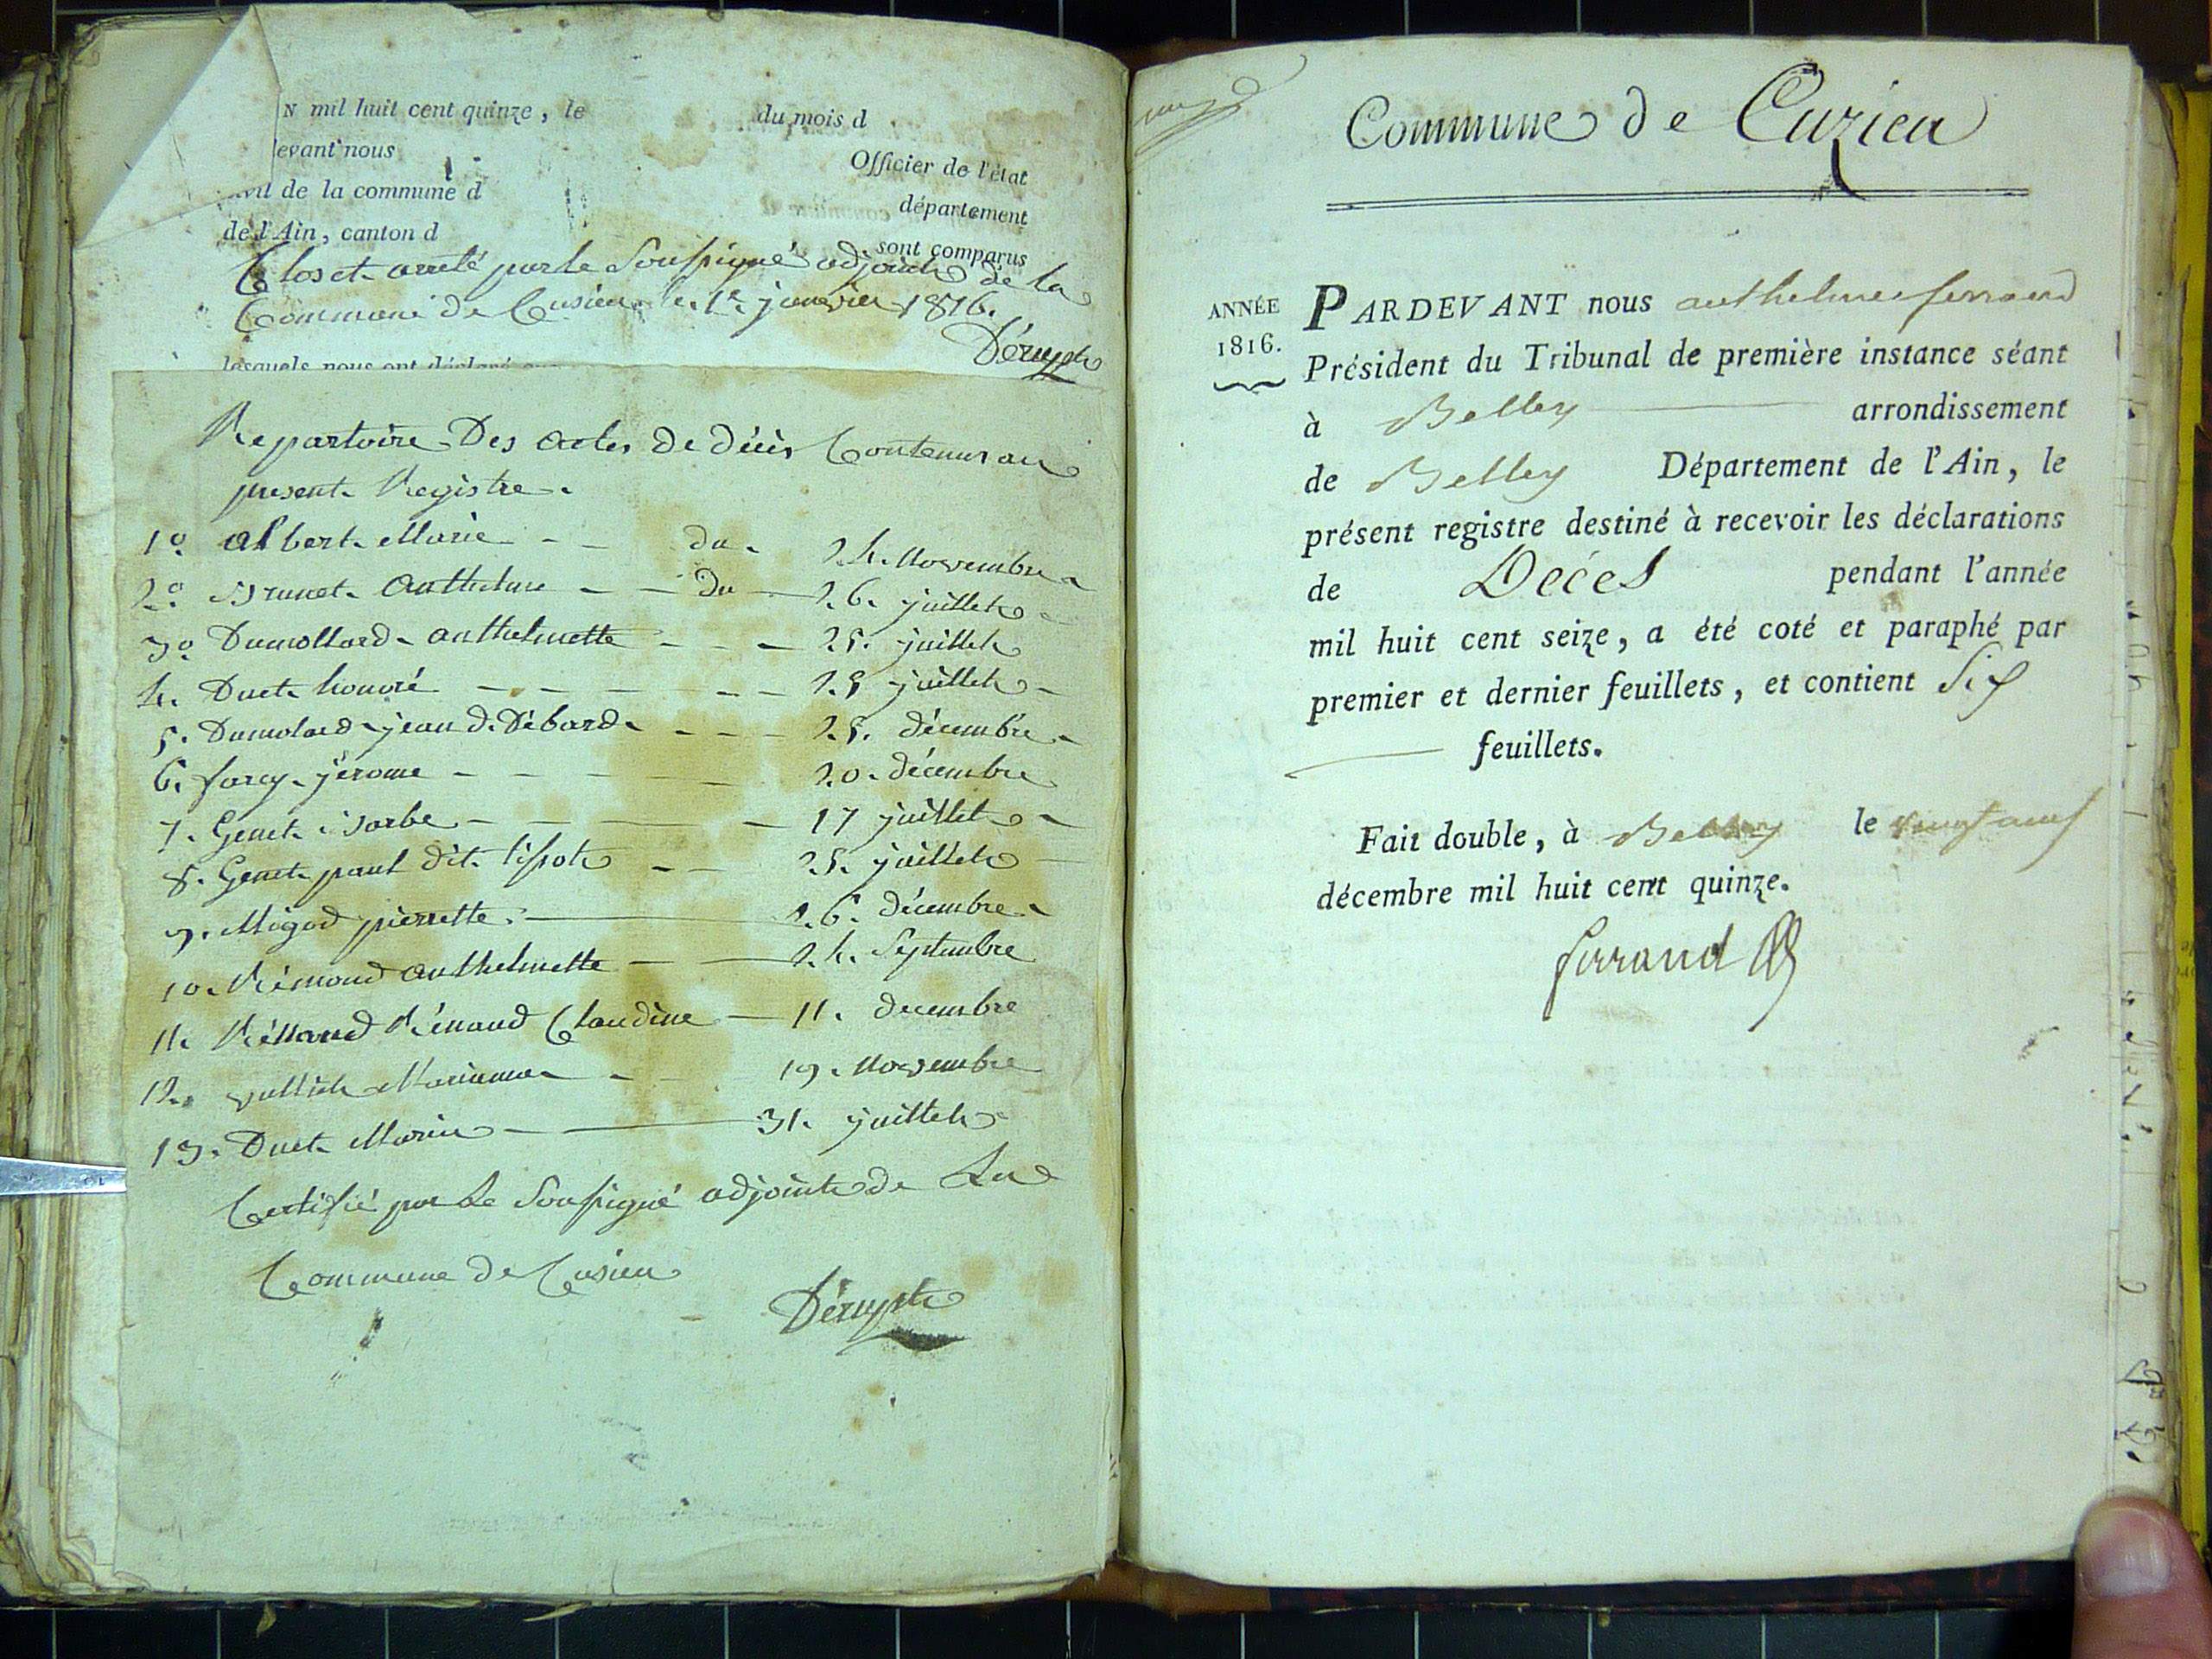 N mil huit cent quinze, le du mois d
devant nous Officier de l'état
civil de la commune d département
de l'Ain, canton d sont comparus
Clos et arrêté par le Soussigné adjoint de la
Commune de Cusieu le 1er janvier 1816.
Dérupte
lesquels nous ont déclaré que
Repartoire Des actes de décès Contenus au
present Registre.
1º albert Marie - - du - 24. Novembre
2º Brunet Anthelme - - Du - 26. juillet
3º Dumollard anthelmette - - - 25. juillet
4. Duet honoré - - - - - 25 juillet
5. Dumolard jean d. Débard - - - 25. décembre
6. forey jérome - - - - 20. décembre
7. Genet Barbe - - - 17 juillet
8. Genet paul dit tissot - - 25. juillet
9. Migod pierrette - 26. décembre
10. Rémond anthelmette - - 24. Septembre
11. Rémond Rénaud Claudine - 11. decembre
12. Marianne - - 19. Novembre
13. Duet Marie - - 31. juillet
Certifié par Le Soussigné adjoint de La
Commune de Cusieu
Dérupte
Commune de Cuzieu
ANNÉE
1816.
PARDEVANT nous anthelme ferrand
Président du Tribunal de première instance séant
à Belley arrondissement
de Belley Département de l'Ain, le
présent registre destiné à recevoir les déclarations
de Décès pendant l'année
mil huit cent seize, a été coté et paraphé par
premier et dernier feuillets, et contient Six
feuillets.
Fait double, à Belley le vingt neuf
décembre mil huit cent quinze.
ferrand